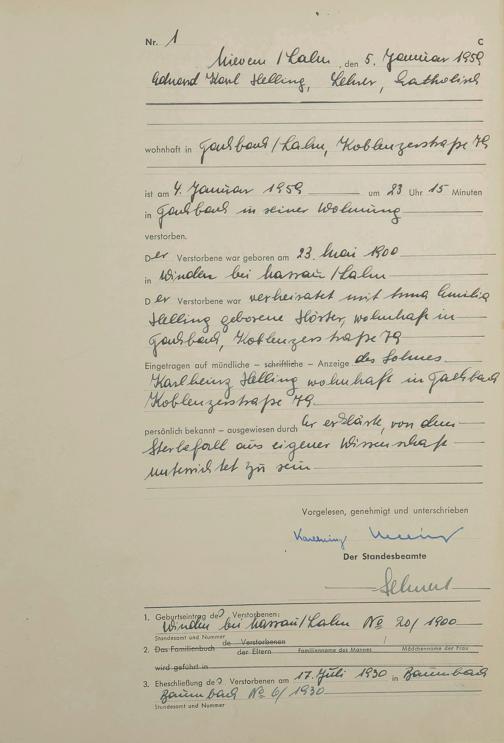 Nr. 1 C
Miesem / Lahn, den 5. Januar 1959
Eduard Karl Helling, Lehrer, katholisch
wohnhaft in Fachbach / Lahn, Koblenzerstraße 79
ist am 4. Januar 1959 um 23 Uhr 15 Minuten
in Fachbach in seiner Wohnung
verstorben.
Der Verstorbene war geboren am 23. Mai 1900
in Winden bei Nassau / Lahn
Der Verstorbene war verheiratet mit Anna Emilia
Helling geborene Höster, wohnhaft in
Fachbach, Koblenzerstraße 79
Eingetragen auf mündliche – schriftliche – Anzeige des Sohnes
Karlheinz Helling wohnhaft in Fachbach
Koblenzerstraße 79
persönlich bekannt – ausgewiesen durch Er erklärte, von dem
Sterbefall aus eigener Wissenschaft
unterrichtet zu sein
Vorgelesen, genehmigt und unterschrieben
Karlheinz Helling
Der Standesbeamte
1. Geburtseintrag des Verstorbenen:
Winden bei Nassau / Lahn No 20/1900
Standesamt und Nummer
2. Das Familienbuch de Verstorbenen
der Eltern Familienname des Mannes / Mädchenname der Frau
wird geführt in
3. Eheschließung des Verstorbenen am 17. Juli 1930 in Baumbach
Baumbach No 6/1930
Standesamt und Nummer